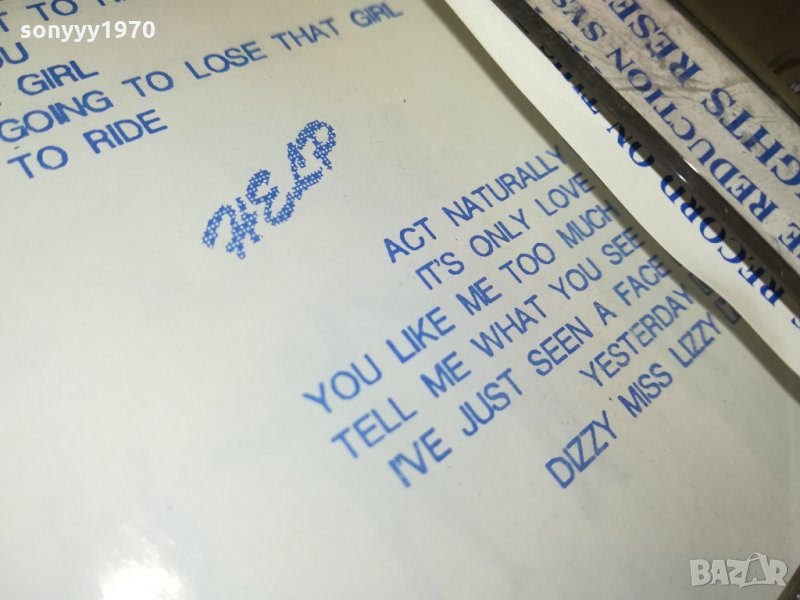 sonyyy1970
YOU
GIRL
GOING TO LOSE THAT GIRL
TO RIDE
HELP
ACT NATURALLY
IT'S ONLY LOVE
YOU LIKE ME TOO MUCH
TELL ME WHAT YOU SEE
I'VE JUST SEEN A FACE
YESTERDAY
DIZZY MISS LIZZY
RECORD ON
REDUCTION SYS
GHTS RESE
BAZAR